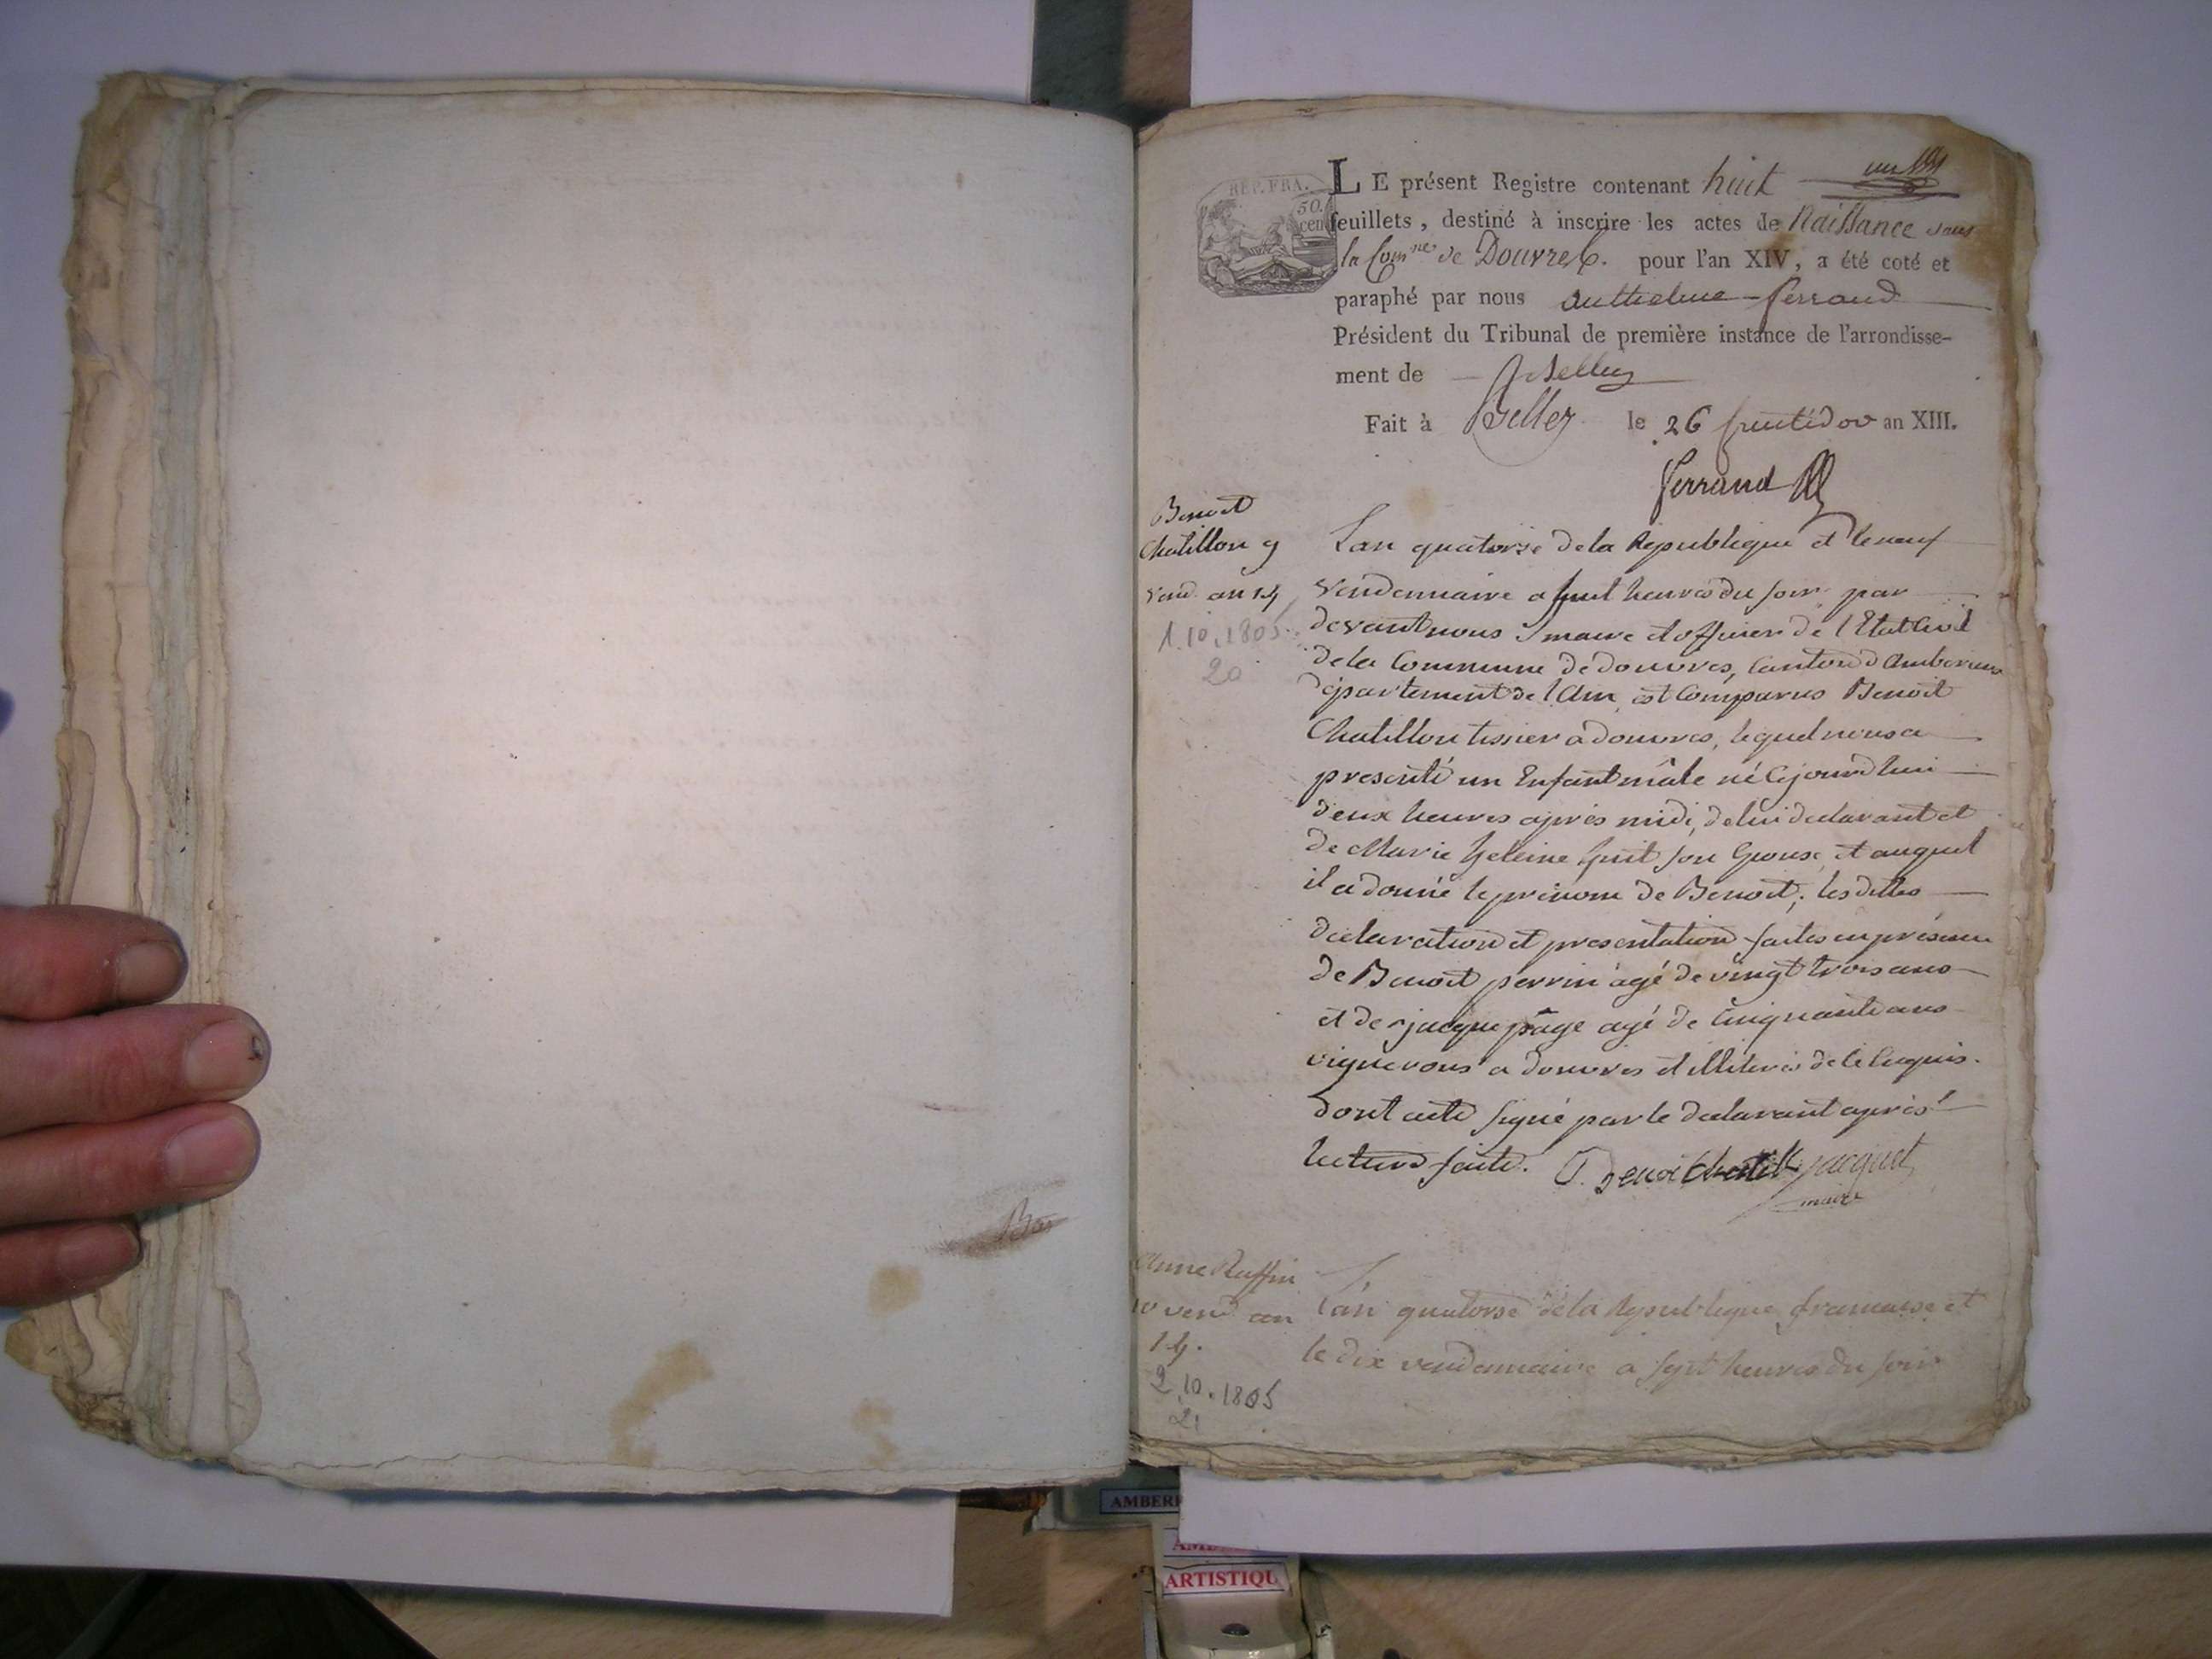 REP. FRA.
50.
cen
LE présent Registre contenant huit
feuillets, destiné à inscrire les actes de Naissance dans
la Comne de Douvres. pour l'an XIV, a été coté et
paraphé par nous anthelme ferrand
Président du Tribunal de première instance de l'arrondisse-
ment de Belley
Fait à Belley le 26 fructidor an XIII.
ferrand
Benoit
Chatillon 9
vend. an 14
1.10.1805.
20
L'an quatorze de la Republique et le neuf
vendemiaire a heures du soir par
devant nous maire et officier de l'Etat Civil
de la Commune de douvres, canton d'Amberieux
departement de l'Ain, est comparus Benoit
Chatillon tissier a douvres, lequel nous a
presenté un Enfant mâle né cejourd'hui
deux heures après midi, de lui declarant et
de Marie heleine son Epouse, et auquel
il a donné le prénom de Benoit; les dittes
declaration et presentation faites en présence
de Benoit perrin âgé de vingt trois ans
et de jacque page agé de cinquante ans
vignerons a douvres et illiterés de ce enquis.
dont acte signé par le declarant après
lecture faite. Benoi Chatill jacquet
maire
Bas
Anne Ruffin
10 vend an
14.
2.10.1805
21
L'an quatorse de la Republique francaise et
le dix vendemiaire a sept heures du soir
AMBER
ARTISTIQU